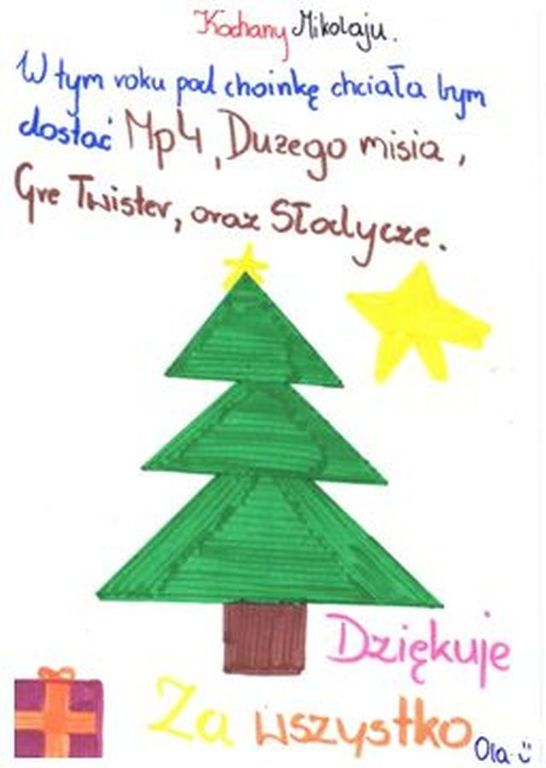 Kochany Mikolaju.
W tym roku pod choinkę chciała bym
dostać Mp4, Dużego misia,
Gre Twister, oraz Słodycze.
Dziękuje
Za wszystko
Ola :)